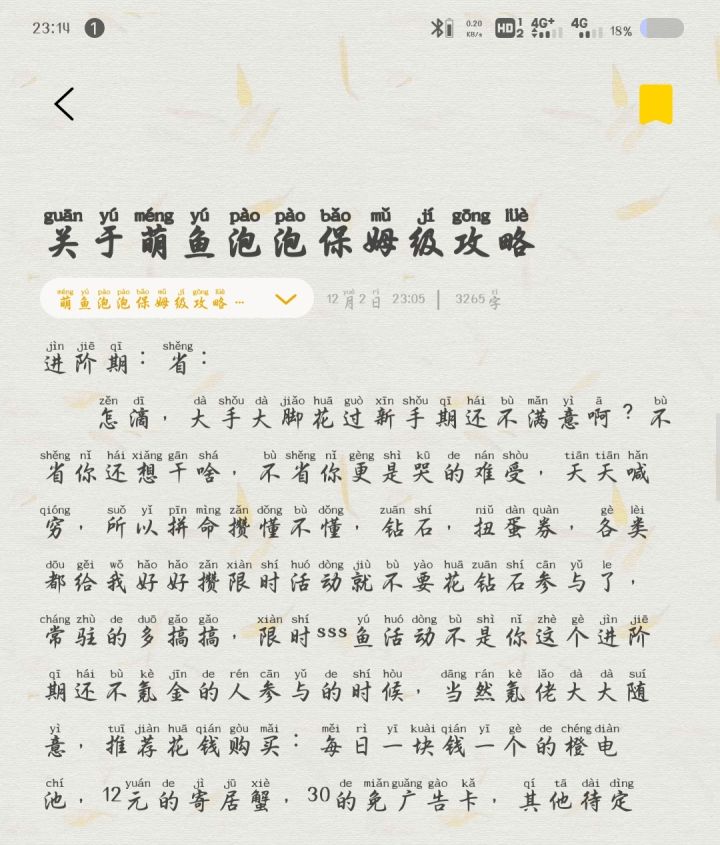 23:14 1 0.20 KB/s HD 1 2 4G+ 4G 18%
guān yú méng yú pào pào bǎo mǔ jí gōng lüè
关于萌鱼泡泡保姆级攻略
méng yú pào pào bǎo mǔ jí gōng lüè
萌鱼泡泡保姆级攻略…
yuè rì zì
12月2日 23:05 | 3265字
jìn jiē qī shěng
进阶期：省：
zěn dī dà shǒu dà jiǎo huā guò xīn shǒu qī hái bù mǎn yì ā bù
怎滴，大手大脚花过新手期还不满意啊？不
shěng nǐ hái xiǎng gān shá bù shěng nǐ gèng shì kū de nán shòu tiān tiān hǎn
省你还想干啥，不省你更是哭的难受，天天喊
qióng suǒ yǐ pīn mìng zǎn dǒng bù dǒng zuān shí niǔ dàn quàn gè lèi
穷，所以拼命攒懂不懂，钻石，扭蛋券，各类
dōu gěi wǒ hǎo hǎo zǎn xiàn shí huó dòng jiù bù yào huā zuān shí cān yǔ le
都给我好好攒限时活动就不要花钻石参与了，
cháng zhù de duō gǎo gǎo xiàn shí yú huó dòng bù shì nǐ zhè gè jìn jiē
常驻的多搞搞，限时sss鱼活动不是你这个进阶
qī hái bù kè jīn de rén cān yǔ de shí hòu dāng rán kè lǎo dà dà suí
期还不氪金的人参与的时候，当然氪佬大大随
yì tuī jiàn huā qián gòu mǎi měi rì yī kuài qián yī gè de chéng diàn
意，推荐花钱购买：每日一块钱一个的橙电
chí yuán de jì jū xiè de miǎn guǎng gào kǎ qí tā dài dìng
池，12元的寄居蟹，30的免广告卡，其他待定